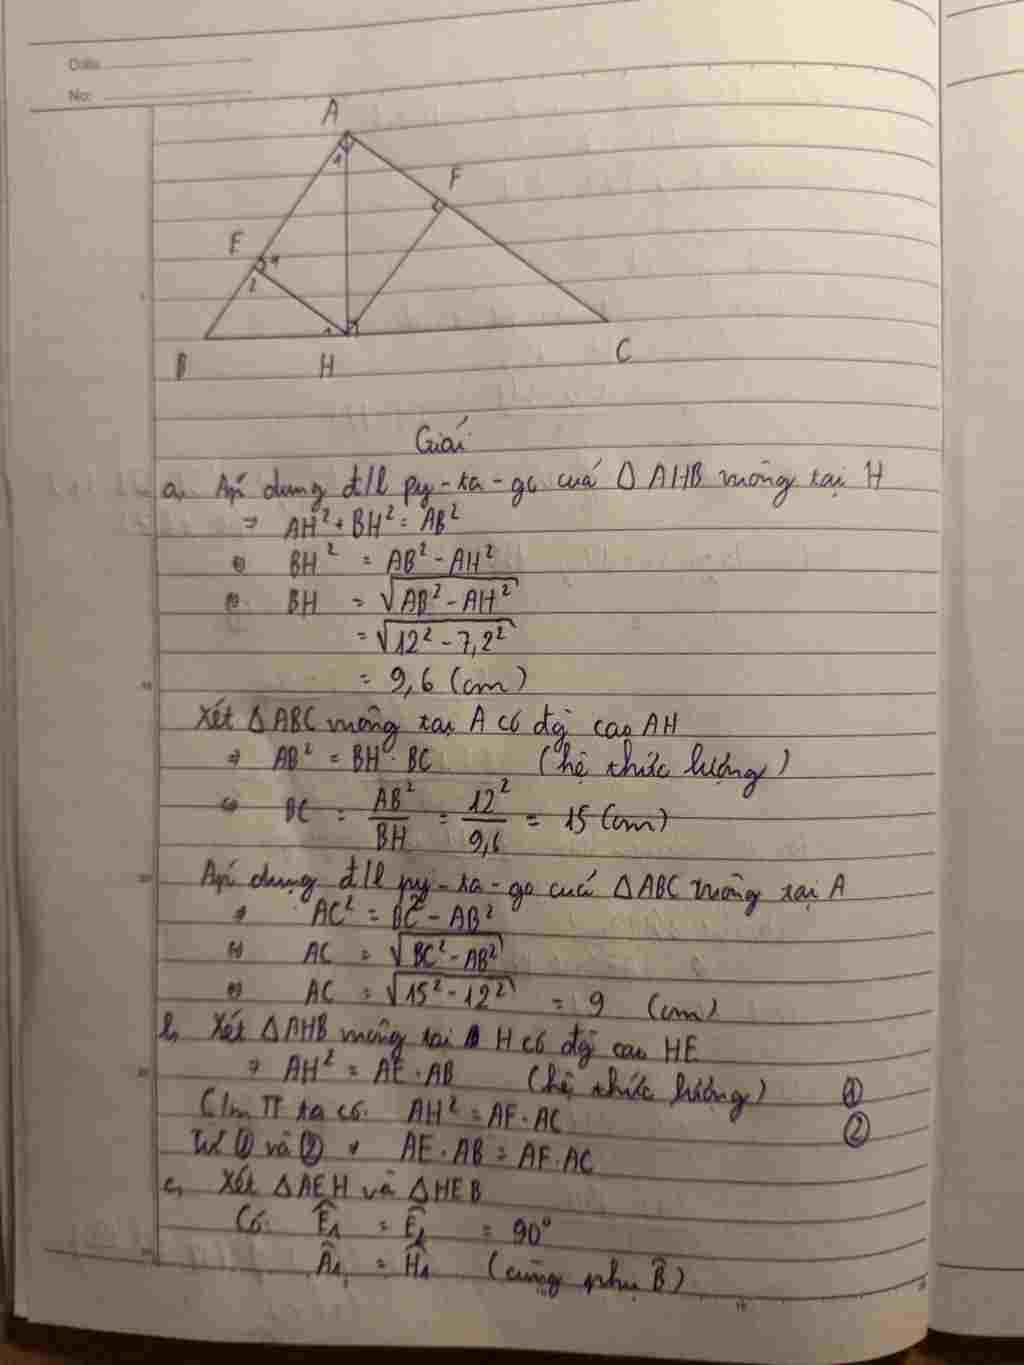 Date
No:
A
F
E
1
1
2
1
B
H
C
Giải
a, Áp dụng đ/l py-ta-go cuả Δ AHB vuông tại H
⇒ AH² + BH² = AB²
⇔ BH² = AB² - AH²
⇔ BH = √(AB² - AH²)
= √(12² - 7,2²)
= 9,6 (cm)
Xét Δ ABC vuông tại A có đg cao AH
⇒ AB² = BH · BC (hệ thức lượng)
⇔ BC = AB²/BH = 12²/9,6 = 15 (cm)
Áp dụng đ/l py-ta-go cuả Δ ABC vuông tại A
⇒ AC² = BC² - AB²
⇔ AC = √(BC² - AB²)
⇔ AC = √(15² - 12²) = 9 (cm)
b, Xét Δ AHB vuông tại H có đg cao HE
⇒ AH² = AE · AB (hệ thức lượng) ①
C/m TT ta có: AH² = AF · AC ②
Từ ① và ② ⇒ AE · AB = AF · AC
c, Xét Δ AEH và Δ HEB
Có: Ê₁ = Ê₂ = 90°
Â₁ = Ĥ₁ (cùng phụ B̂)